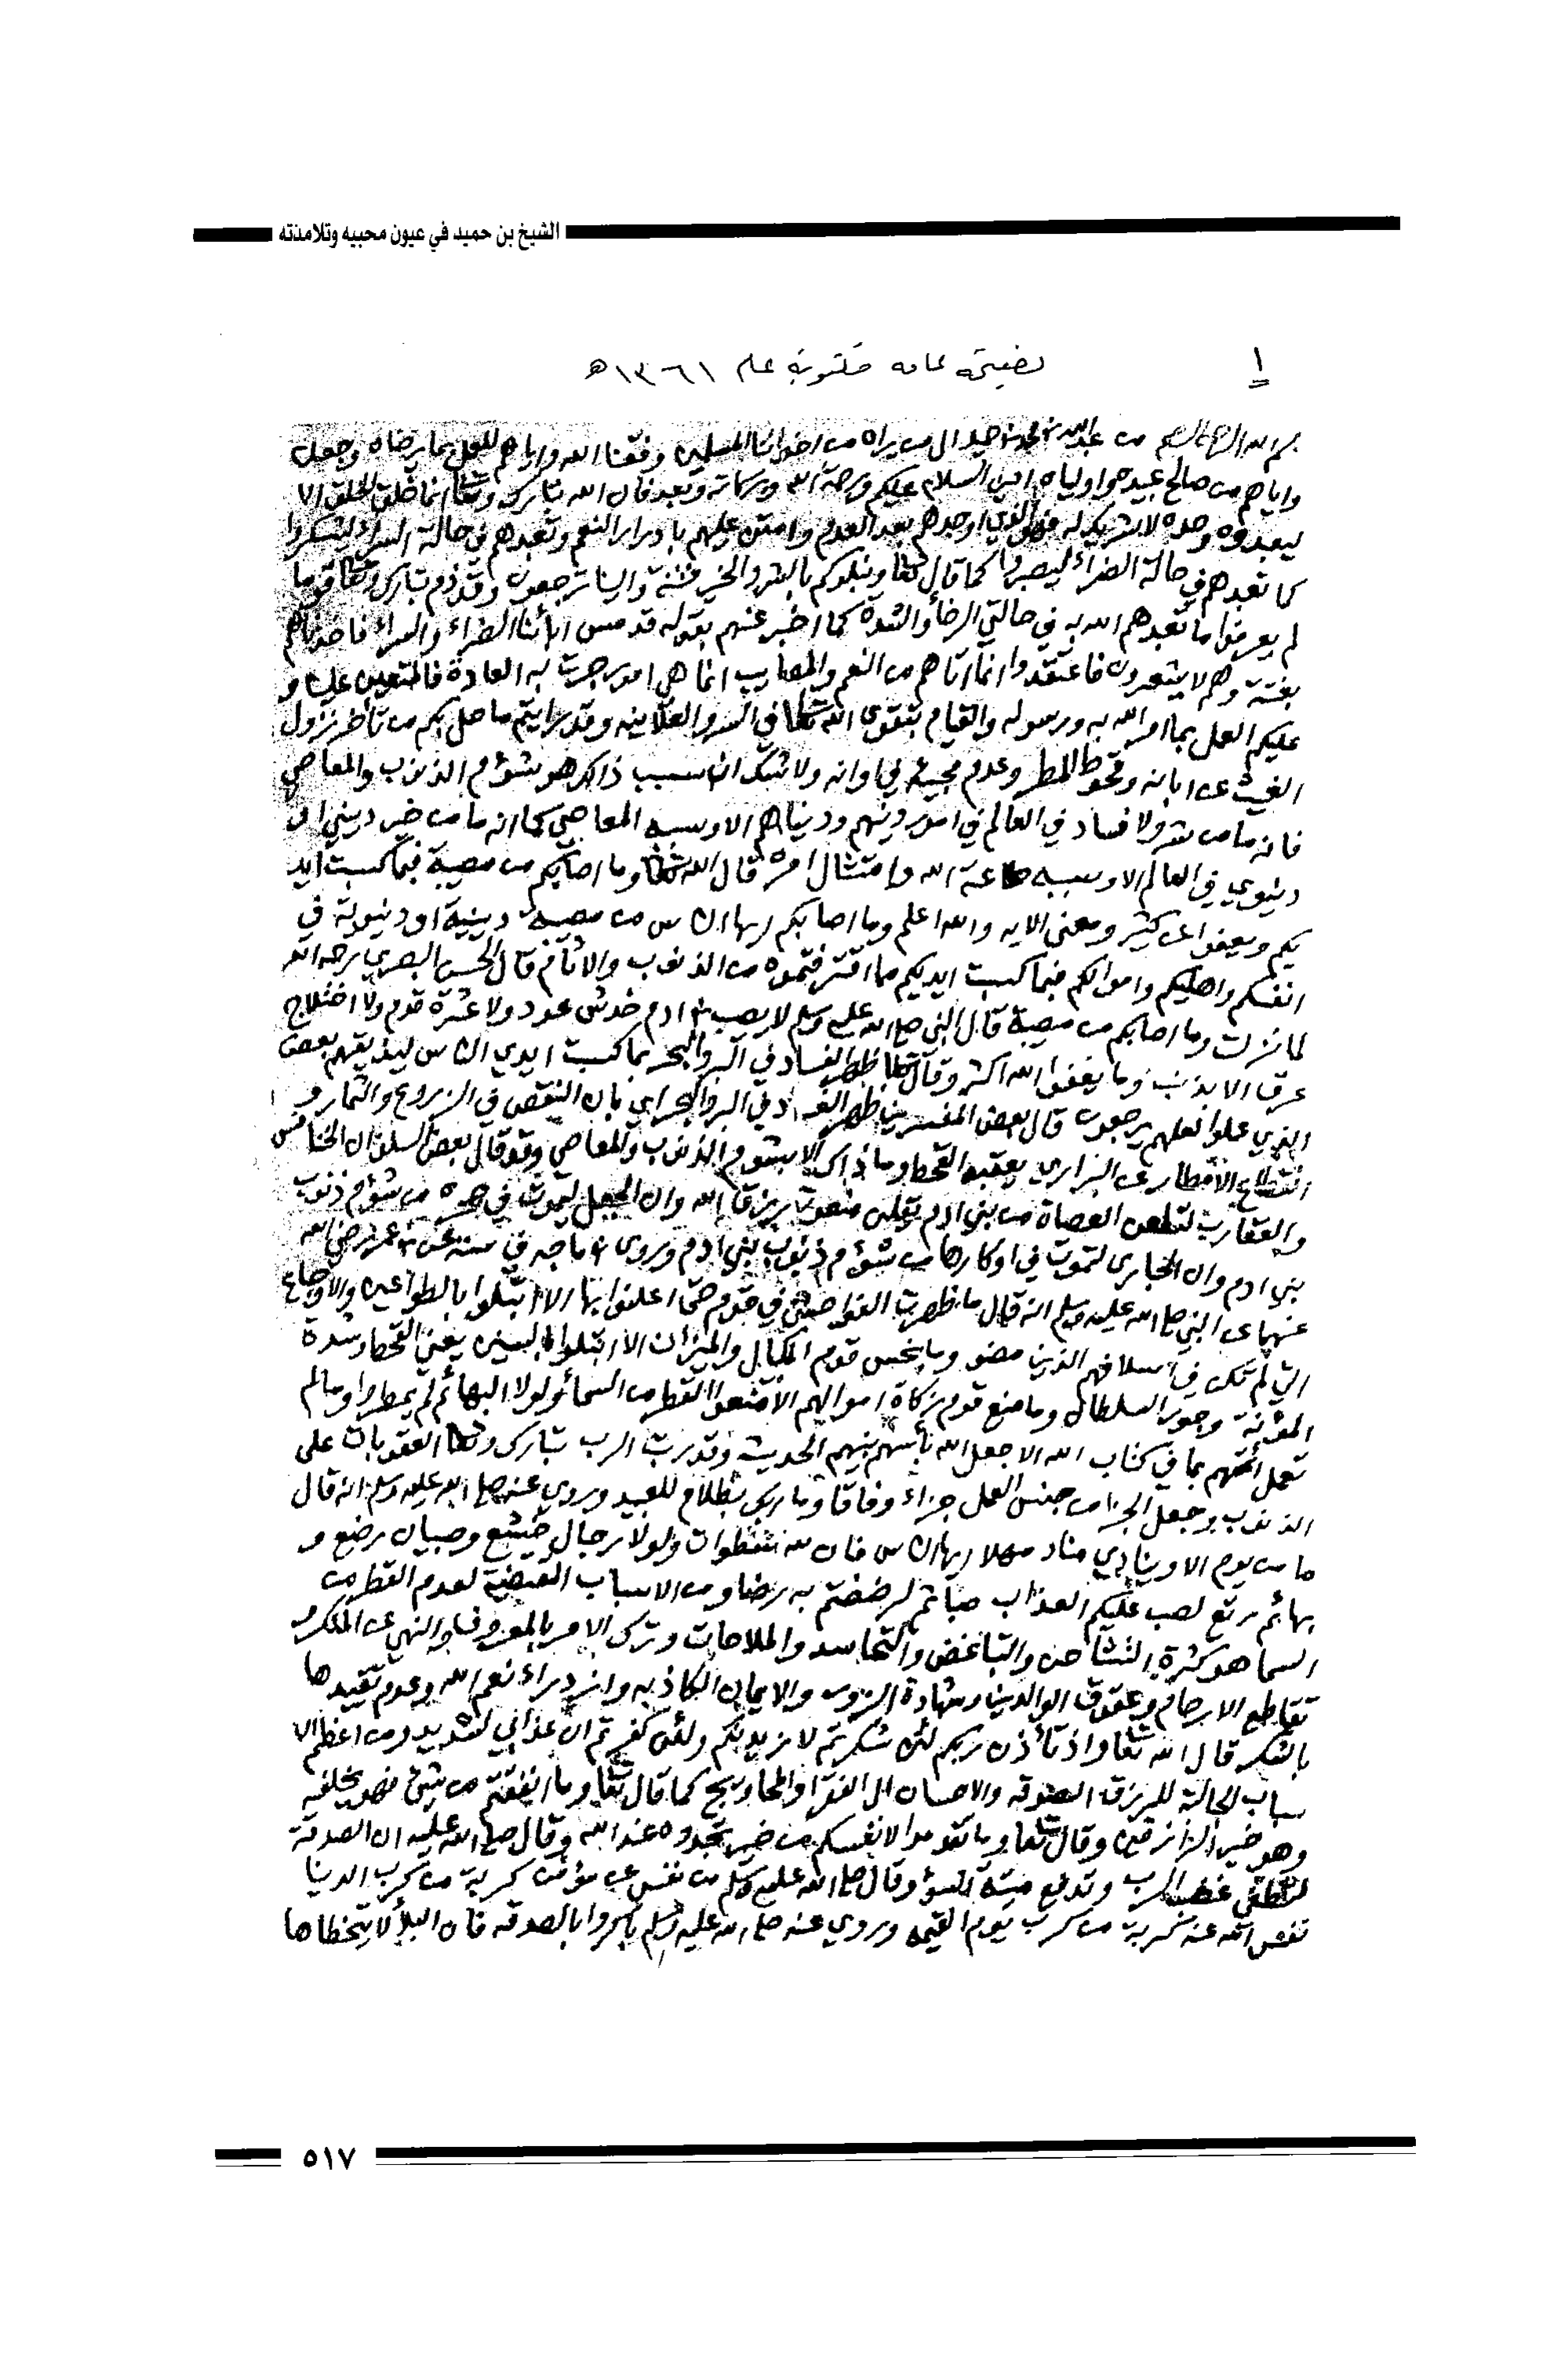 الشيخ بن حميد في عيون محبيه وتلامذته
١
نصيحة عامه مكتوبة عام ١٣٦١هـ
بسم الله الرحمن الرحيم من عبدالله بن محمد بن حميد الى من يراه من اخواننا المسلمين وفقنا الله واياهم للعمل بما يرضاه وجعلنا
واياهم من صالح عبيده واولياه امين السلام عليكم ورحمة الله وبركاته وبعد فان الله تبارك وتعا انما خلق الخلق الا
ليعبدوه وحده لا شريك له فهو الذي اوجدهم بعد العدم وامتن عليهم بادرار النعم وتعبدهم في حالة السراء ليشكروا
كما تعبدهم في حالة الضراء ليصبروا كما قال تعا ونبلوكم بالشر والخير فتنة والينا ترجعون وقد ذم تبارك وتعا قوما
لم يعرفوا ما تعبدهم الله به في حالتي الرخأ والشدة كما اخبر عنهم بقوله قد مس ابأنا الضراء والسراء فاخذناهم
بغتة وهم لا يشعرون فاعتقدوا انما اتاهم من النعم والمصايب انما هي امور جرت به العادة فالمتعين علينا و
عليكم العمل بما امر الله به ورسوله والقيام بتقوى الله تعا في السر والعلانيه وقد رايتم ما حل بكم من تأخر نزول
الغيث عن ابانه وقحوط المطر وعدم مجيئه في اوانه ولا شك ان سبب ذالك هو شؤم الذنوب والمعاصي
فانه ما من شر ولا فساد في العالم في امور دينهم ودنياهم الا وسببه المعاصي كما انه ما من خير ديني او
دنيوي في العالم الا وسببه طاعة الله وامتثال امره قال الله تعا وما اصابكم من مصيبة فبما كسبت ايد
يكم ويعفوا عن كثير ومعنى الايه والله اعلم وما اصابكم ايها الناس من مصيبه دينية او دنيوية في
انفسكم واهليكم واموالكم فبما كسبت ايديكم مما اقترفتموه من الذنوب والاثام قال الحسن البصري رحمه الله
لما نزلت وما اصابكم من مصيبة قال النبي صلى الله عليه وسلم لا يصيب بن ادم خدش عود ولا عثرة قدم ولا اختلاج
عرق الا بذنب وما يعفوا الله اكثر وقال تعا ظهر الفساد في البر والبحر بما كسبت ايدي الناس ليذيقهم بعض
الذي عملوا لعلهم يرجعون قال بعض المفسرين ظهر الفساد في البر والبحر اي بان النقص في الزروع والثمار و
انقطاع الامطار عن البراري يعقبه القحط وما ذاك الا بشوم الذنوب والمعاصي وقد قال بعض السلف ان الخنافس
والعقارب لتلعن العصاة من بني ادم تقول منعونا رزق الله وان الجعل ليموت في جحره من شؤم ذنوب
بني ادم وان الحبارى لتموت في اوكارها من شؤم ذنوب بني ادم وروى بن ماجه في سننه عن بن عمر رضي الله
عنهما عن النبي صلى الله عليه وسلم انه قال ما ظهرت الفواحش في قوم حتى اعلنوا بها الا ابتلوا بالطواعين والاوجاع
التي لم تكن في اسلافهم الذين مضو وما بخس قوم المكيال والميزان الا ابتلوا بالسنين يعني القحط وشدة
المؤنة وجور السلطان وما منع قوم زكاة اموالهم الا منعوا القطر من السمأ ولولا البهائم لم يمطروا وما لم
تعمل أئمتهم بما في كتاب الله الا جعل الله بأسهم بينهم الحديث وقد رتب الرب تبارك وتعا العقوبات على
الذنوب وجعل الجزاء من جنس العمل جزاء وفاقا وما ربك بظلام للعبيد وروي عنه صلى الله عليه وسلم انه قال
ما من يوم الا وينادي مناد مهلا ايها الناس فان لله سطوات ولولا رجال خشع وصبيان رضع و
بهائم رتع لصب عليكم العذاب صبا ثم لرضضتم به رضا ومن الاسباب المفضية لعدم القطر من
السما هو كثرة التشاحن والتباغض والتحاسد والملاحات وترك الامر بالمعروف والنهي عن المنكر و
تقاطع الارحام وعقوق الوالدين وشهادة الزور والايمان الكاذبه وازدراء نعم الله وعدم تقييدها
بالشكر قال الله تعا واذ تأذن ربكم لئن شكرتم لازيدنكم ولئن كفرتم ان عذابي لشديد ومن اعظم الا
سباب الجالبة للرزق الصدقه والاحسان الى الفقرا والمحاويج كما قال تعا وما انفقتم من شئ فهو يخلفه
وهو خير الرازقين وقال تعا وما تقدموا لانفسكم من خير تجدوه عند الله وقال صلى الله عليه ان الصدقة
لتطفئ غضب الرب وتدفع ميتة السؤ وقال صلى الله عليه وسلم من نفس عن مؤمن كربة من كرب الدنيا
نفس الله عنه كربة من كرب يوم القيمه وروي عنه صلى الله عليه وسلم باكروا بالصدقه فان البلأ لا يتخطاها
٥١٧